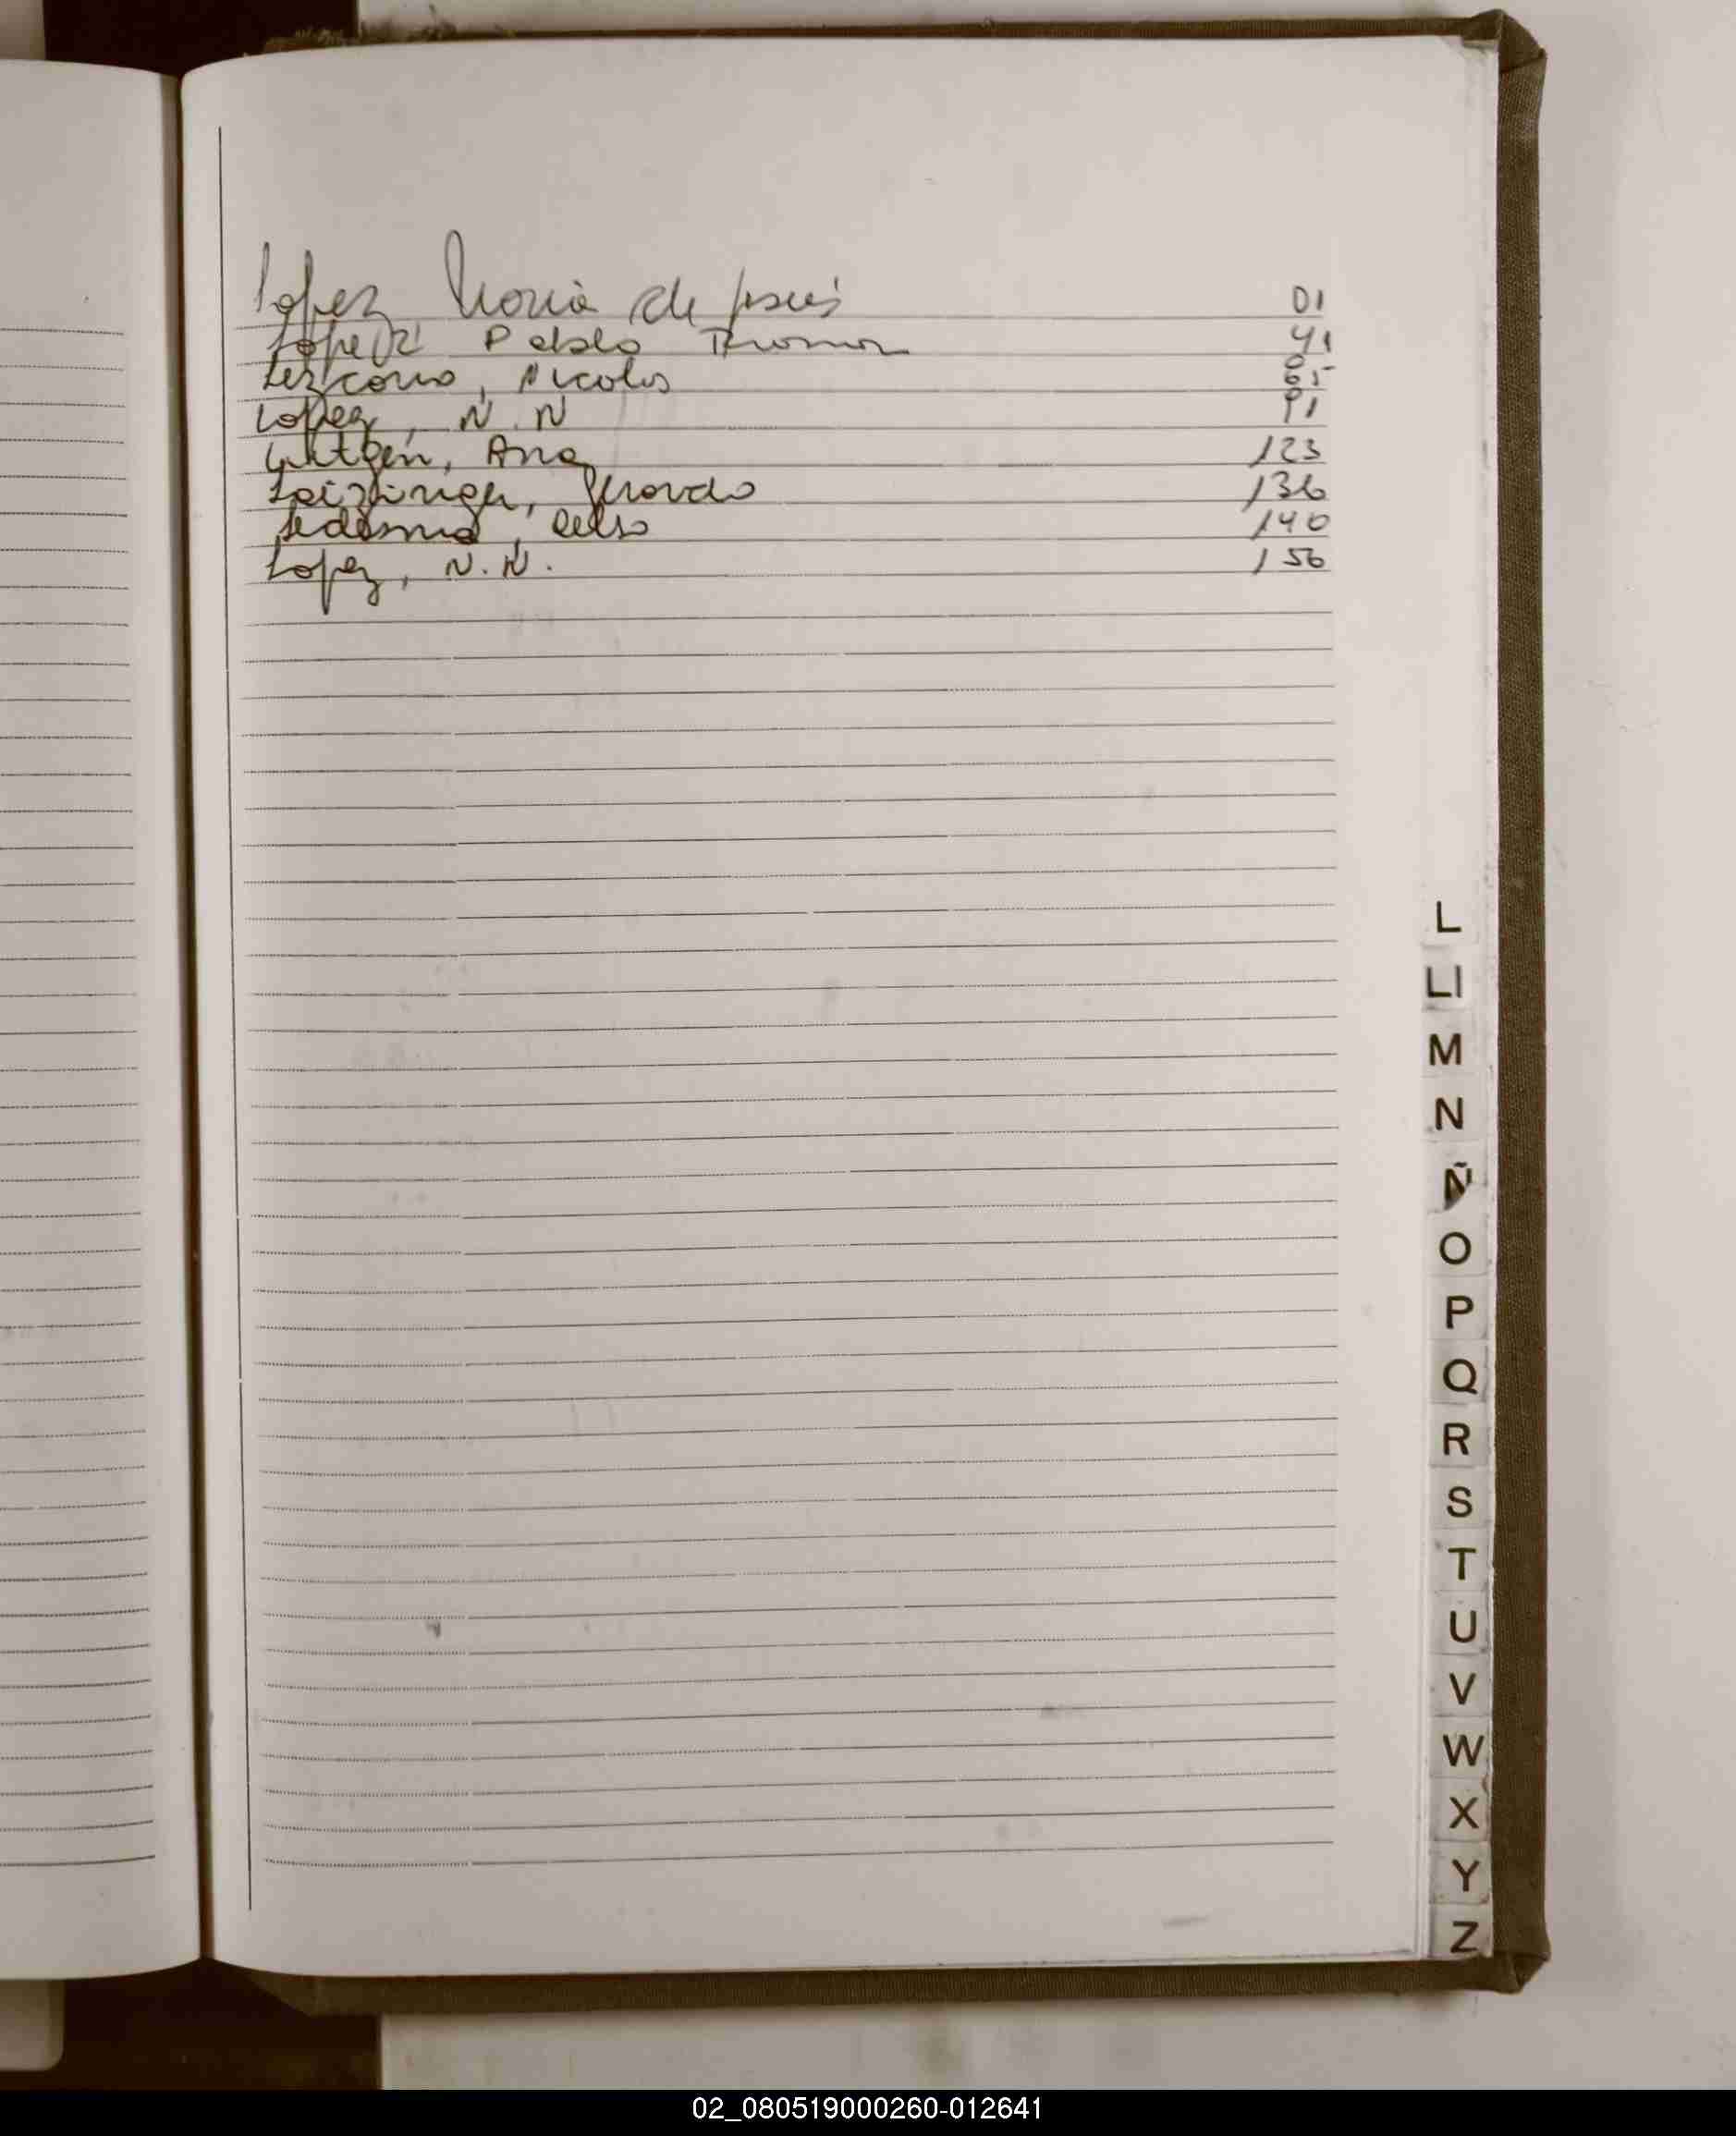 Lopez Maria de Jesús 01
Lopez Pablo Ramon 41
Lezcano, Nicolas 65
Lopez, N. N 91
Ana 123
Gerardo 136
Ledesma, Celso 140
Lopez, N. N. 156
L
Ll
M
N
Ñ
O
P
Q
R
S
T
U
V
W
X
Y
Z
02_080519000260-012641